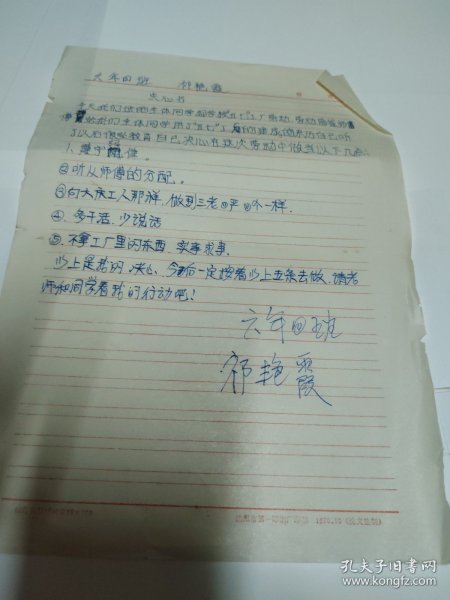 六年四班 祁艳霞
决心书
今天我们班的全体同学和学校五七工厂劳动,劳动
给我们全体同学讲了五七工厂的
了以后很受教育自己决心在这次劳动中做到以下几点:
1、遵守纪律。
②听从师傅的分配。
③向大庆工人那样,做到三老四严四个一样。
④、多干活,少说话
⑤、不拿工厂里的东西,实事求事。
以上是我的决心、今后一定按着以上五条去做,请老
师和同学看我的行动吧!
六年四班
祁艳霞
1970.10
孔夫子旧书网
www.kongfz.com